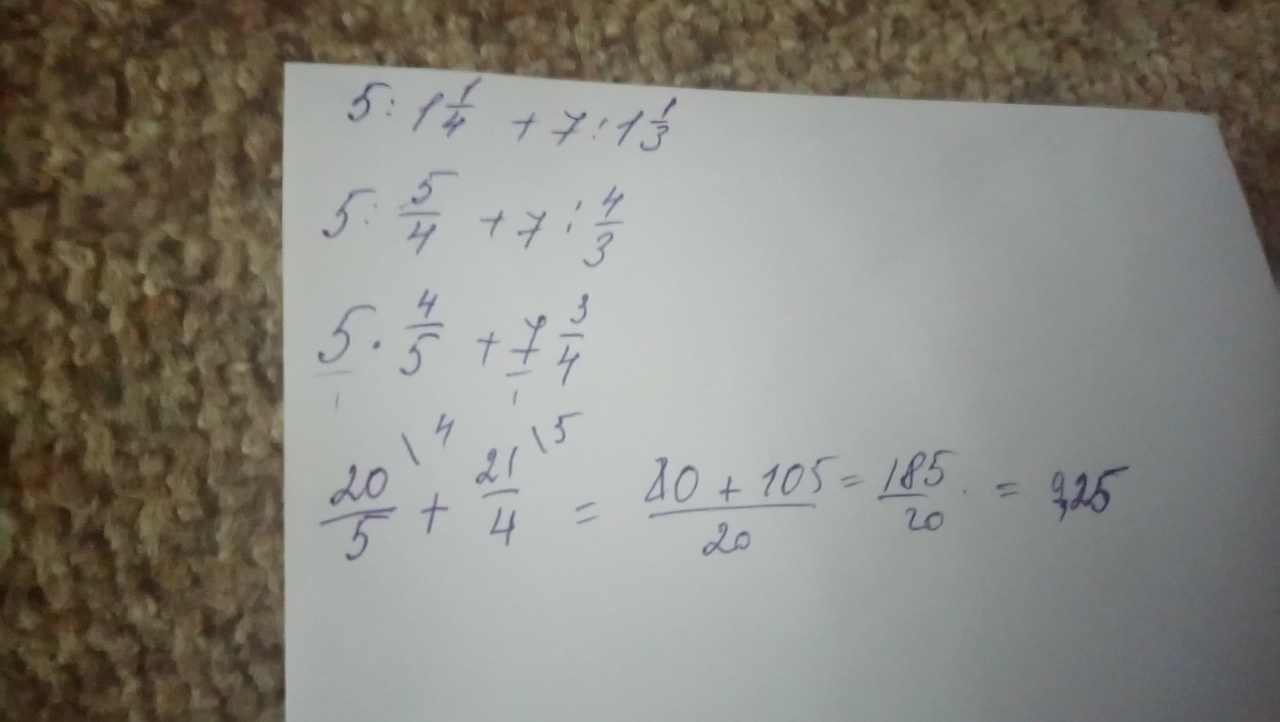 5 : 1 1/4 + 7 : 1 1/3
5 : 5/4 + 7 : 4/3
5/1 · 4/5 + 7/1 3/4
20/5 \4 + 21/4 \5 = 80 + 105/20 = 185/20 = 9,25